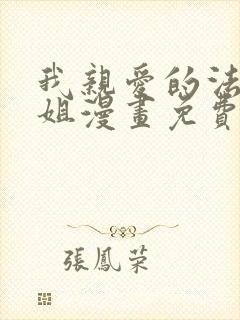 我親愛的法
姐漫畫免費
張鳳榮